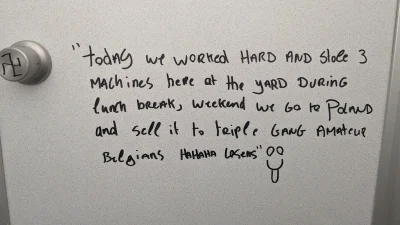 "today we worked HARD AND stole 3
MACHINES here at the YARD DURING
lunch break, weekend we go to Poland
and sell it to triple GANG AMATEUR
Belgians HAHAHA Losers"